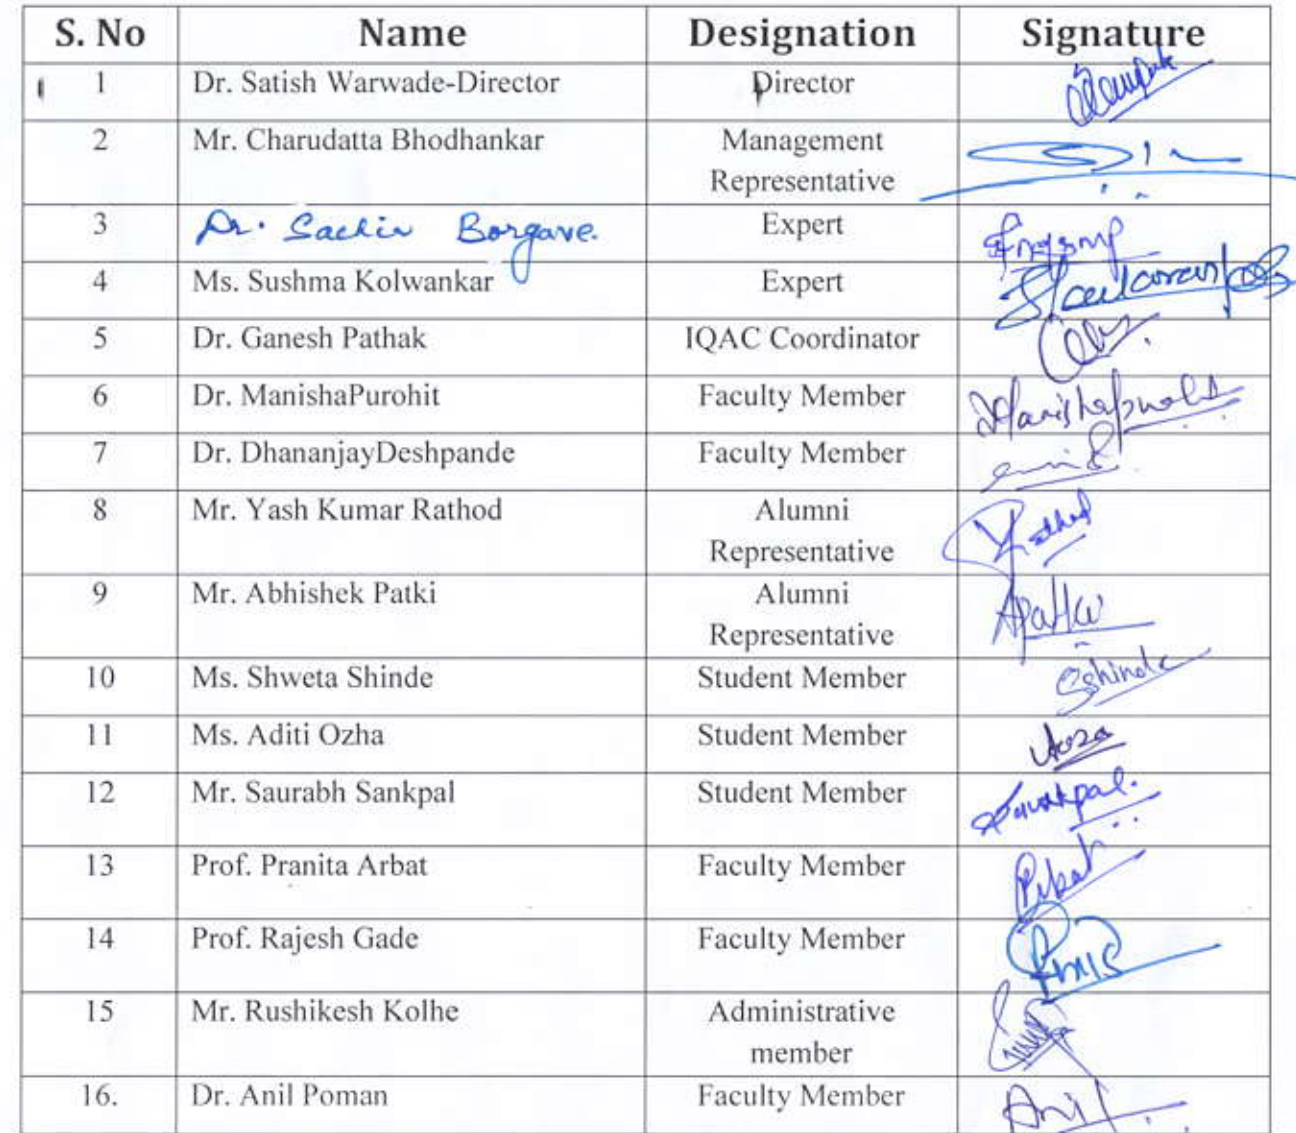 S. No Name Designation Signature
1 Dr. Satish Warwade-Director Director
2 Mr. Charudatta Bhodhankar Management
Representative
3 Dr. Sachin Borgave. Expert
4 Ms. Sushma Kolwankar Expert
5 Dr. Ganesh Pathak IQAC Coordinator
6 Dr. ManishaPurohit Faculty Member
7 Dr. DhananjayDeshpande Faculty Member
8 Mr. Yash Kumar Rathod Alumni
Representative
9 Mr. Abhishek Patki Alumni
Representative
10 Ms. Shweta Shinde Student Member Sshinde
11 Ms. Aditi Ozha Student Member
12 Mr. Saurabh Sankpal Student Member
13 Prof. Pranita Arbat Faculty Member
14 Prof. Rajesh Gade Faculty Member
15 Mr. Rushikesh Kolhe Administrative
member
16. Dr. Anil Poman Faculty Member Anil